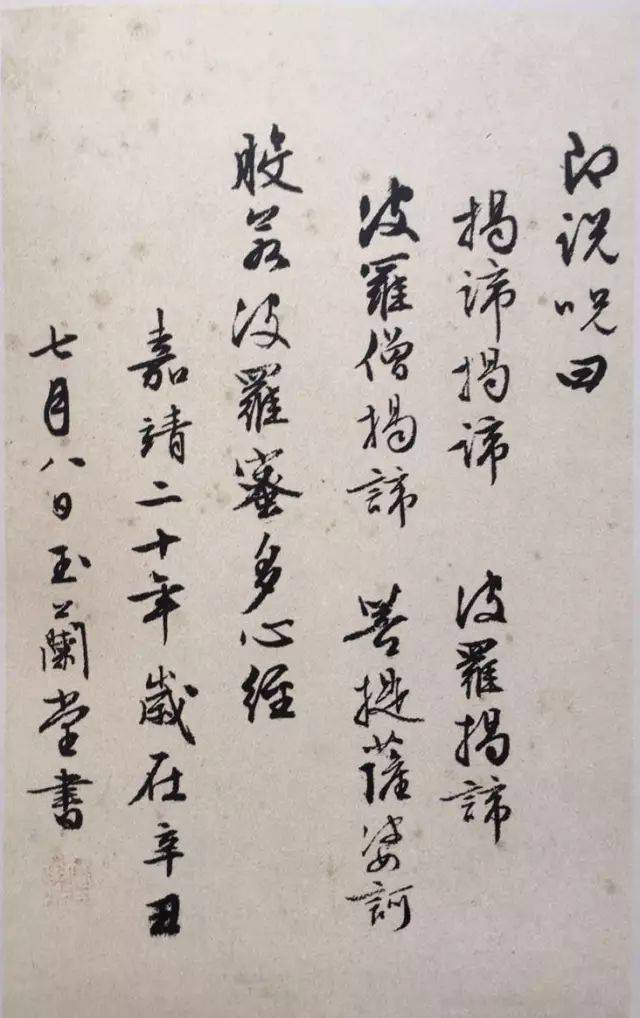 即説呪曰
揭諦揭諦 波羅揭諦
波羅僧揭諦 菩提薩婆訶
般若波羅蜜多心經
嘉靖二十年歲在辛丑
七月八日玉蘭堂書